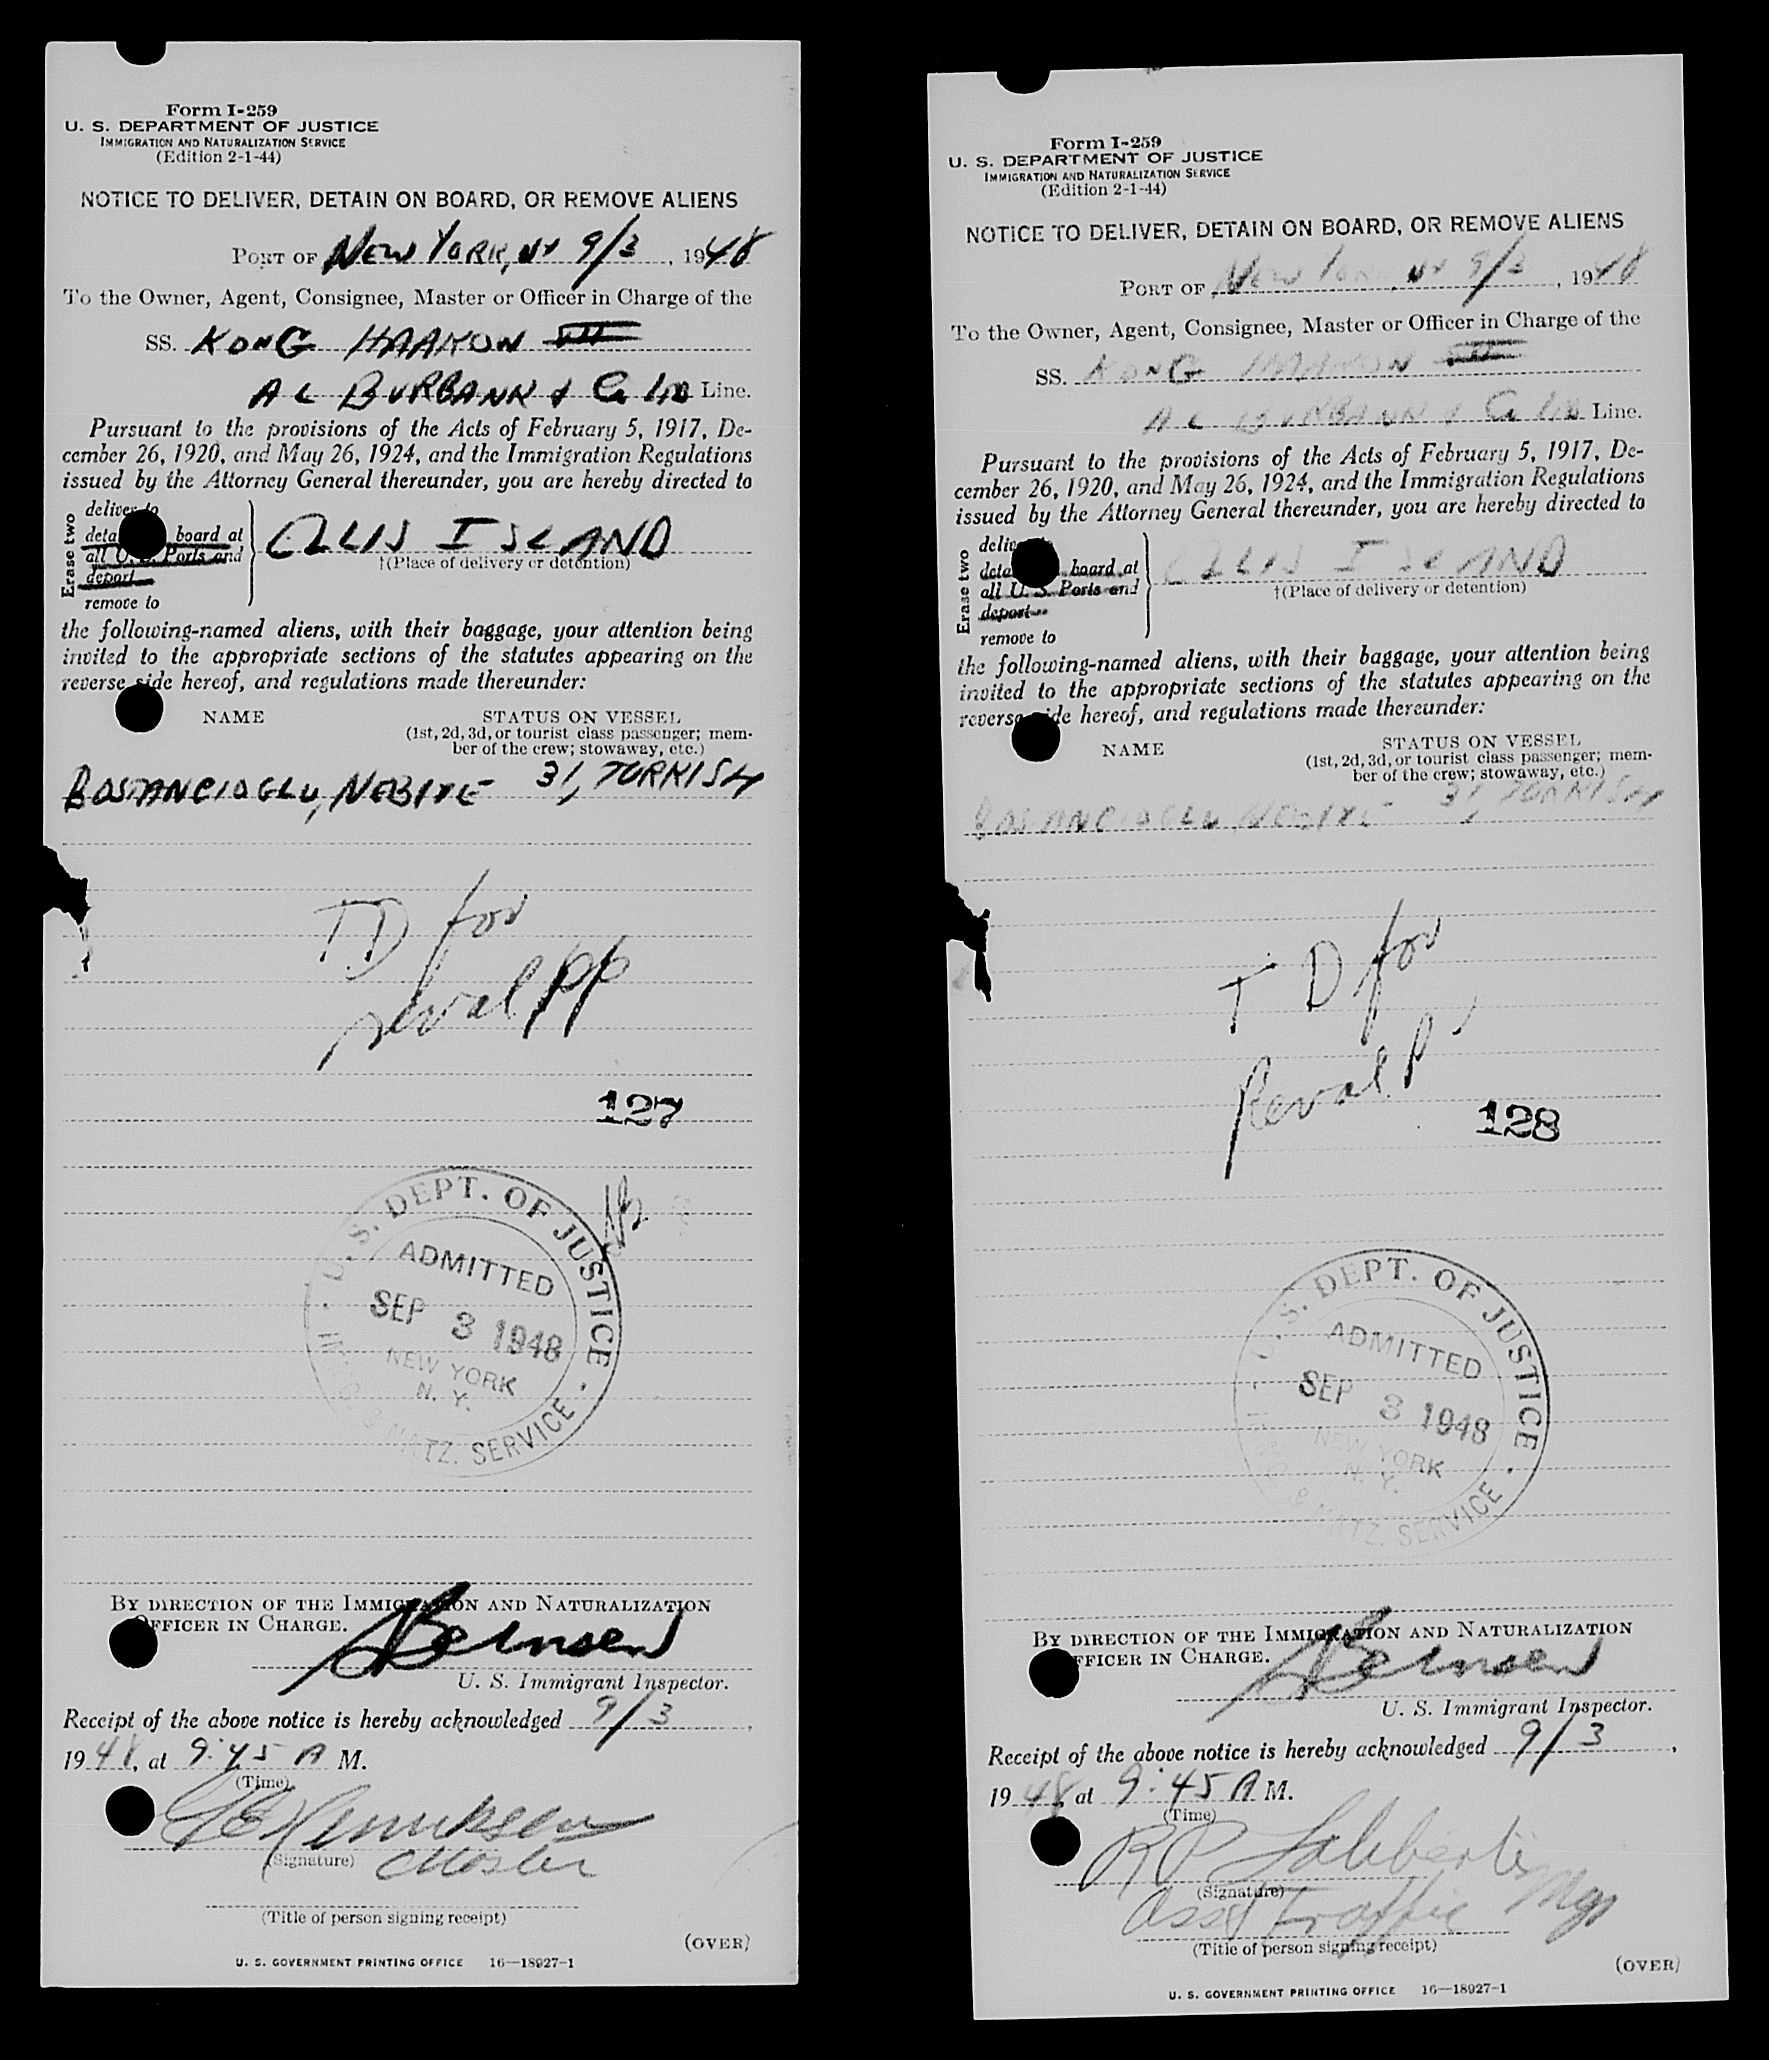 Form I-259
U. S. DEPARTMENT OF JUSTICE
IMMIGRATION AND NATURALIZATION SERVICE
(Edition 2-1-44)
NOTICE TO DELIVER, DETAIN ON BOARD, OR REMOVE ALIENS
PORT OF NEW YORK, NY 9/3, 1948
To the Owner, Agent, Consignee, Master or Officer in Charge of the
SS. KONG HAAKON VII
A L BURBANK & Co LTD Line.
Pursuant to the provisions of the Acts of February 5, 1917, De-
cember 26, 1920, and May 26, 1924, and the Immigration Regulations
issued by the Attorney General thereunder, you are hereby directed to
Erase two
deliver to
board at
all U. S. Ports and
deport
remove to
ELLIS ISLAND
†(Place of delivery or detention)
the following-named aliens, with their baggage, your attention being
invited to the appropriate sections of the statutes appearing on the
reverse side hereof, and regulations made thereunder:
NAME
STATUS ON VESSEL
(1st, 2d, 3d, or tourist class passenger; mem-
ber of the crew; stowaway, etc.)
BOSTANCIOGLU, NEBIYE 31, TURKISH
TD for
reval PP
127
U. S. DEPT. OF JUSTICE
ADMITTED
SEP 3 1948
NEW YORK
N. Y.
& NATZ. SERVICE
BY DIRECTION OF THE IMMIGRATION AND NATURALIZATION
OFFICER IN CHARGE.
U. S. Immigrant Inspector.
Receipt of the above notice is hereby acknowledged 9/3,
1948, at 9:45 A M.
(Time)
Henriksen
(Signature) Master
(Title of person signing receipt)
(OVER)
U. S. GOVERNMENT PRINTING OFFICE 16—18927-1
Form I-259
U. S. DEPARTMENT OF JUSTICE
IMMIGRATION AND NATURALIZATION SERVICE
(Edition 2-1-44)
NOTICE TO DELIVER, DETAIN ON BOARD, OR REMOVE ALIENS
PORT OF New York, NY 9/3, 1948
To the Owner, Agent, Consignee, Master or Officer in Charge of the
SS. KONG HAAKON VII
A L BURBANK & Co LTD Line.
Pursuant to the provisions of the Acts of February 5, 1917, De-
cember 26, 1920, and May 26, 1924, and the Immigration Regulations
issued by the Attorney General thereunder, you are hereby directed to
Erase two
board at
all U. S. Ports and
deport
remove to
ELLIS ISLAND
†(Place of delivery or detention)
the following-named aliens, with their baggage, your attention being
invited to the appropriate sections of the statutes appearing on the
reverse side hereof, and regulations made thereunder:
NAME
STATUS ON VESSEL
(1st, 2d, 3d, or tourist class passenger; mem-
ber of the crew; stowaway, etc.)
BOSTANCIOGLU, NEBIYE 31, TURKISH
T D for
Reval. P
128
U. S. DEPT. OF JUSTICE
ADMITTED
SEP 3 1948
NEW YORK
N. Y.
& NATZ. SERVICE
BY DIRECTION OF THE IMMIGRATION AND NATURALIZATION
OFFICER IN CHARGE.
U. S. Immigrant Inspector.
Receipt of the above notice is hereby acknowledged 9/3,
1948, at 9:45 A M.
(Time)
R P
(Signature)
Asst Traffic Mgr
(Title of person signing receipt)
(OVER)
U. S. GOVERNMENT PRINTING OFFICE 16—18927-1